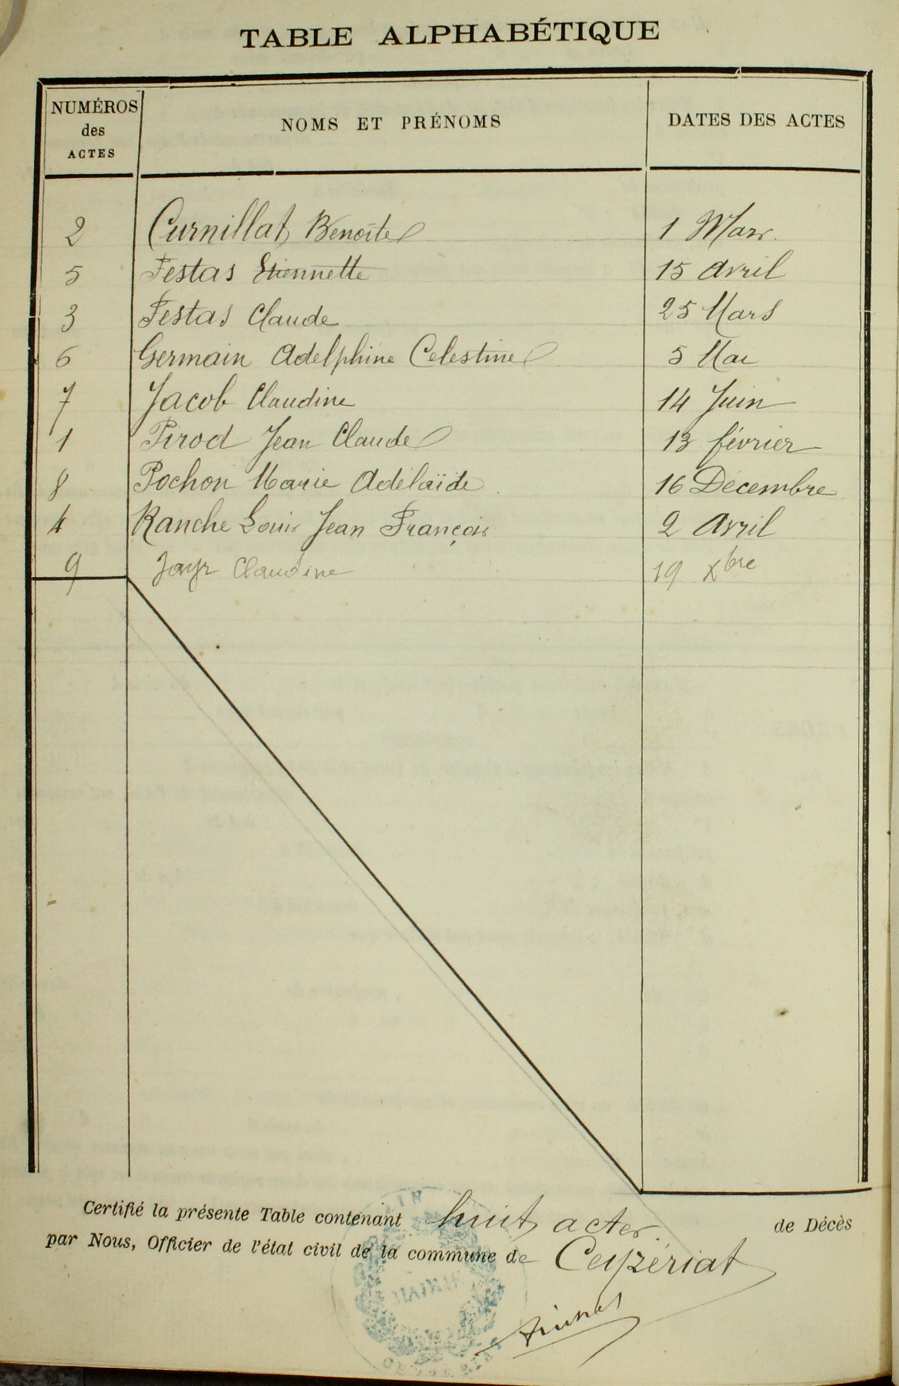 TABLE ALPHABÉTIQUE
NUMÉROS des ACTES NOMS ET PRÉNOMS DATES DES ACTES
2 Curnillat Benoite 1 Mars
5 Festas Etiennette 15 avril
3 Festas Claude 25 Mars
6 Germain Adelphine Celestine 5 Mai
7 Jacob Claudine 14 Juin
1 Pirod Jean Claude 13 février
8 Pochon Marie Adélaïde 16 Décembre
4 Ranche Louis Jean François 2 Avril
9 Jayr Claudine 19 Xbre
Certifié la présente Table contenant huit actes de Décès
par Nous, Officier de l'état civil de la commune de Ceyzériat
AIN
MAIRIE